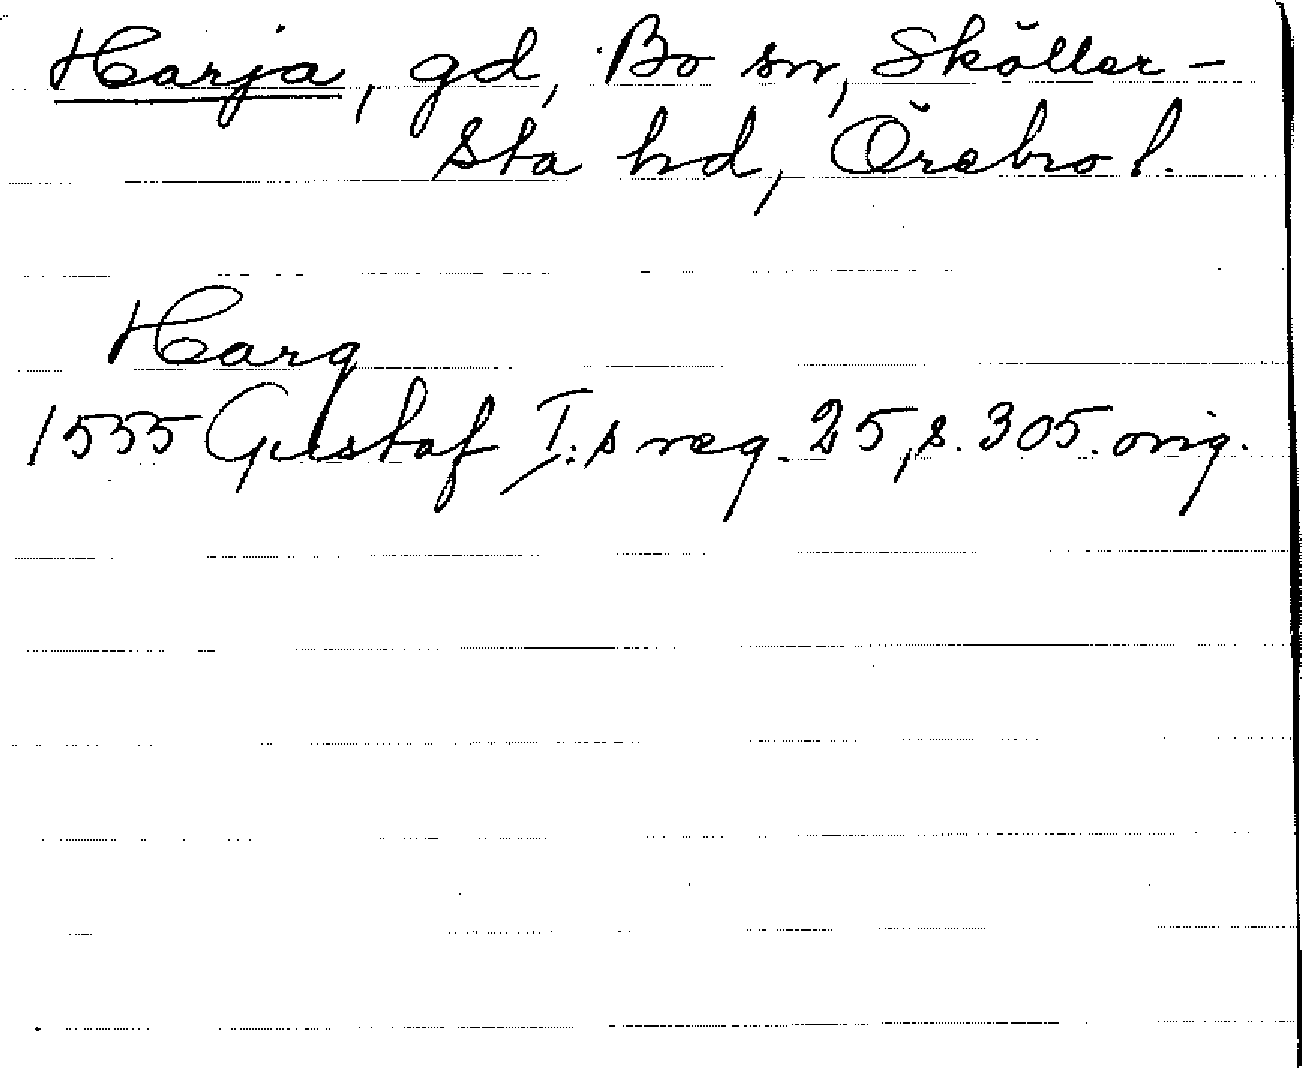 Harja, gd, Bo sn, Sköller-
sta hd, Örebro l.
Harg
1555 Gustaf I:s reg. 25, s. 305. orig.